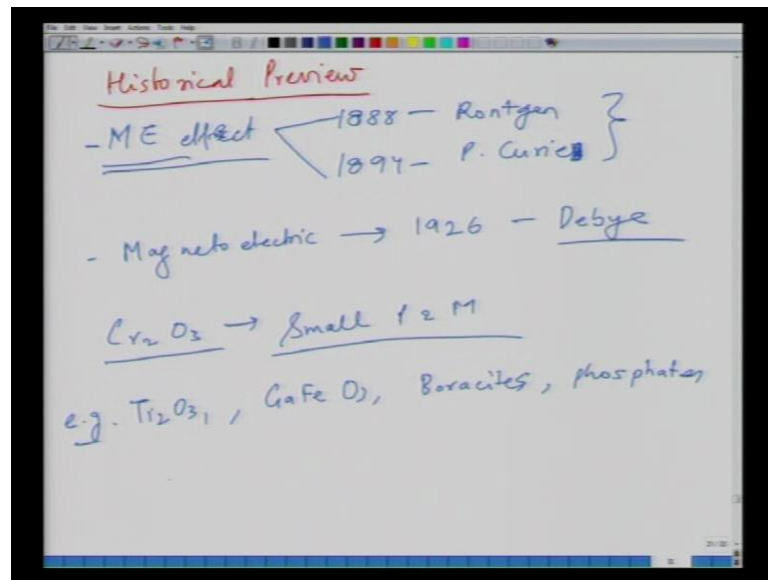 File Edit View Insert Actions Tools Help
Historical Preview
- ME effect
1888 - Rontgen
1894 - P. Curie
- Magnetoelectric → 1926 - Debye
Cr2O3 → Small P & M
e.g. Ti2O3, , GaFeO3, Boracites, phosphates